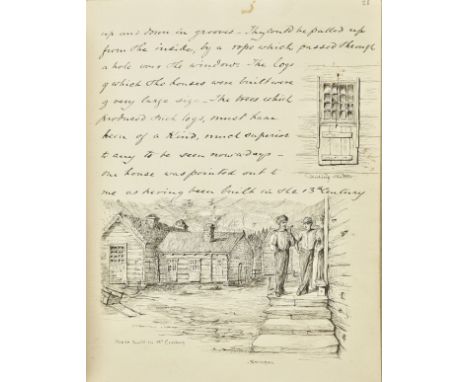 3
21
up and down in grooves - They could be pulled up
from the inside, by a rope which passed through
a hole over the windows. The logs
of which the houses were built were
of very large size - The trees which
produced such logs, must have
been of a kind, much superior
to any to be seen nowadays -
One house was pointed out to
me as having been built in the 13th Century
Sliding Shutter
House built in 13th Century